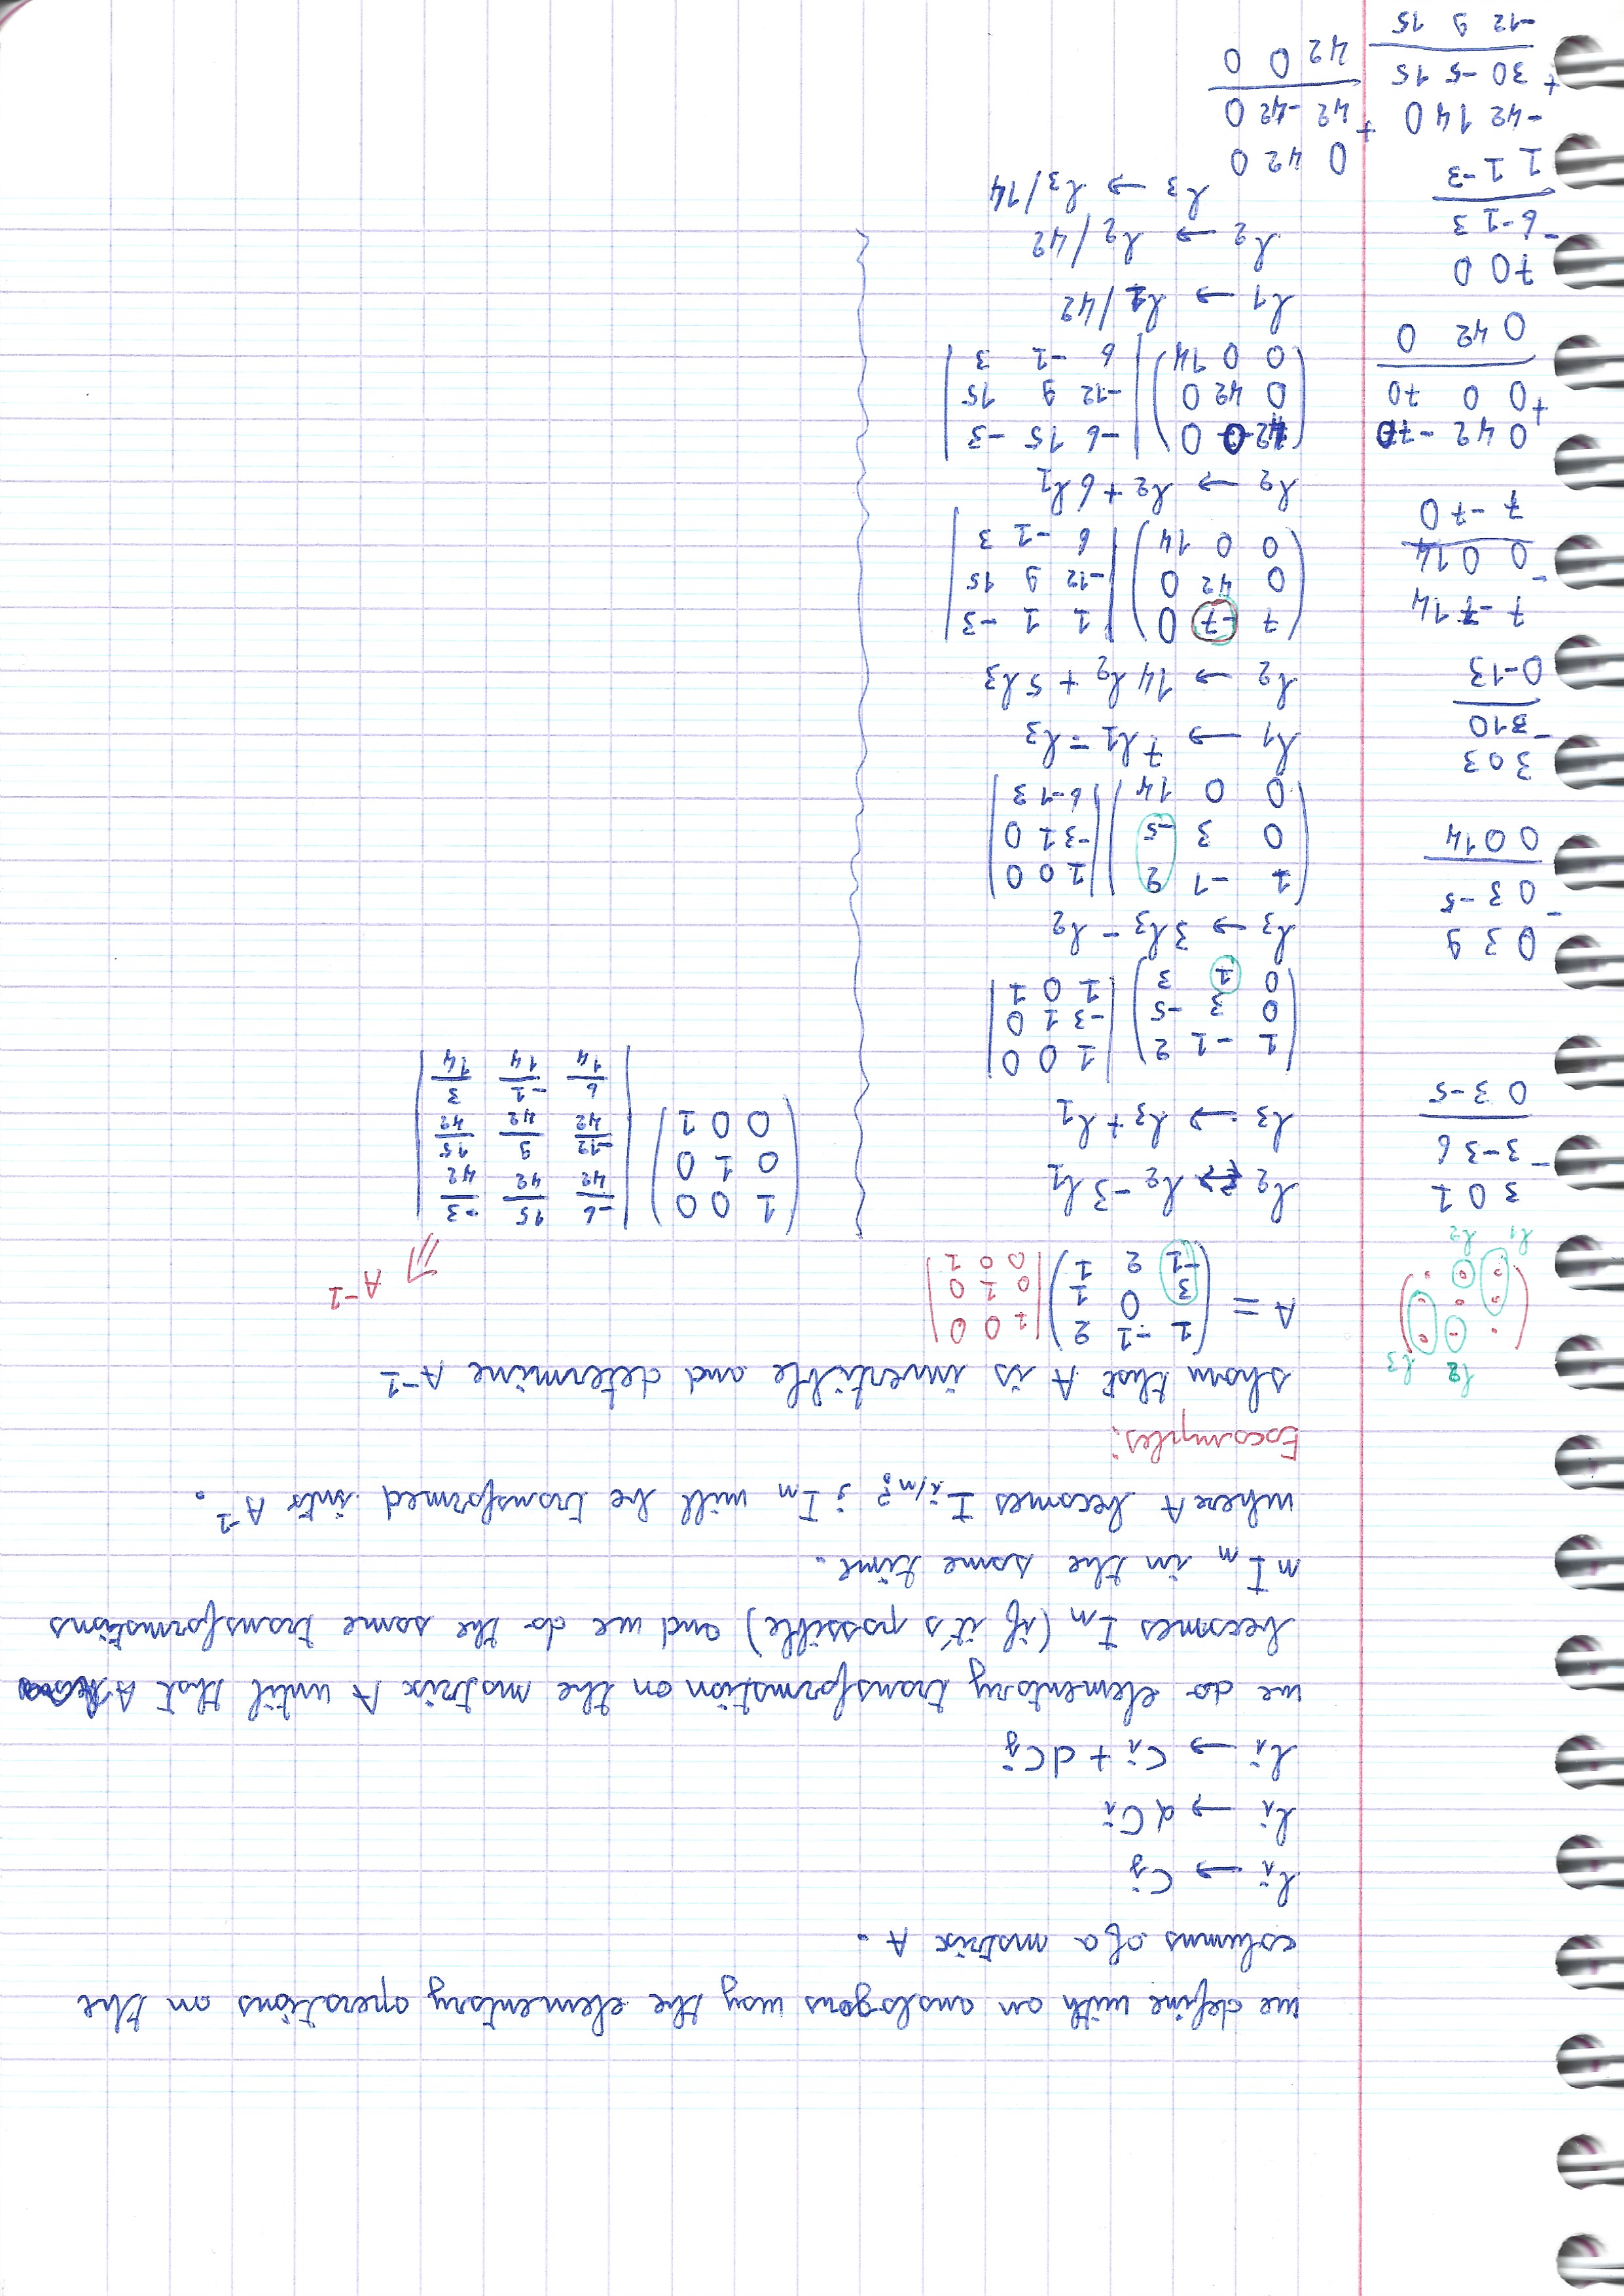 we define with an analogous way the elementary operations on the
columns of a matrix A.
li → Cj
li → αCi
li → Ci + dCj
we do elementary transformation on the matrix A until that A
becomes In (if it's possible) and we do the same transformations
n In in the same time.
where A becomes I i/n? ; In will be transformed into A⁻¹.
Excamples:
show that A is invertible and determine A⁻¹
l2 l3
l1 l2
A = (1 -1 2) |1 0 0|
(3 0 1) |0 1 0|
(-1 2 1) |0 0 1|
l2 ↔ l2 - 3l1
l3 → l3 + l1
(1 -1 2) |1 0 0|
(0 3 -5) |-3 1 0|
(0 1 3) |1 0 1|
l3 → 3l3 - l2
(1 -1 2) |1 0 0|
(0 3 -5) |-3 1 0|
(0 0 14) |6 -1 3|
l1 → 7l1 = l3
l2 → 14l2 + 5l3
(7 -7 0) |1 1 -3|
(0 42 0) |-12 9 15|
(0 0 14) |6 -1 3|
l2 → l2 + 6l1
(42 0 0) |-6 15 -3|
(0 42 0) |-12 9 15|
(0 0 14) |6 -1 3|
l1 → l1/42
l2 → l2/42
l3 → l3/14
⇒ A⁻¹
(1 0 0) |-6/42 15/42 -3/42|
(0 1 0) |-12/42 9/42 15/42|
(0 0 1) |6/14 -1/14 3/14|
3 0 1
- 3 -3 6
0 3 -5
0 3 9
- 0 3 -5
0 0 14
3 0 3
- 3 1 0
0 -1 3
7 -7 14
- 0 0 14
7 -7 0
0 42 -70
+ 0 0 70
0 42 0
7 0 0
- 6 -1 3
1 1 -3
-42 14 0
+ 30 -5 15
-12 9 15
0 42 0
+ 42 -42 0
42 0 0